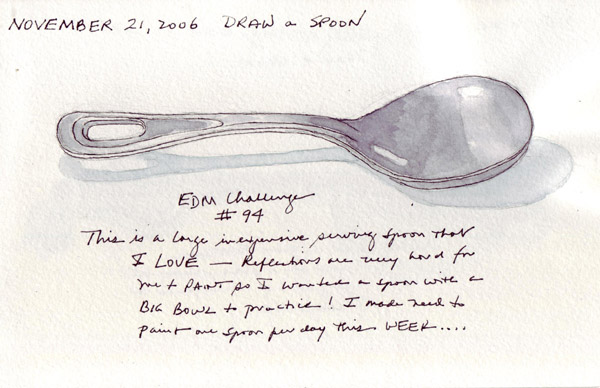 NOVEMBER 21, 2006 DRAW a SPOON
EDM Challenge
# 94
This is a large inexpensive serving spoon that
I LOVE — Reflections are very hard for
me to PAINT so I wanted a spoon with a
BIG BOWL to practice! I made need to
paint one spoon per day this WEEK....